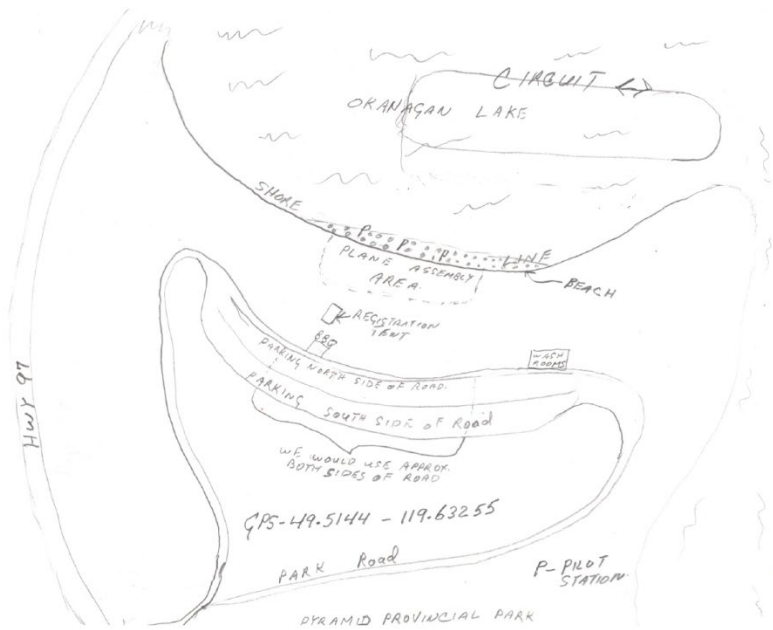 CIRCUIT
OKANAGAN LAKE
SHORE LINE
P P P
PLANE ASSEMBLY
AREA.
BEACH
REGISTRATION
TENT
BBQ
WASH
ROOMS
PARKING NORTH SIDE OF ROAD.
PARKING SOUTH SIDE OF Road
WE WOULD USE APPROX.
BOTH SIDES OF ROAD
HWY 97
GPS-49.5144 - 119.63255
PARK Road
P-PILOT
STATION.
PYRAMID PROVINCIAL PARK